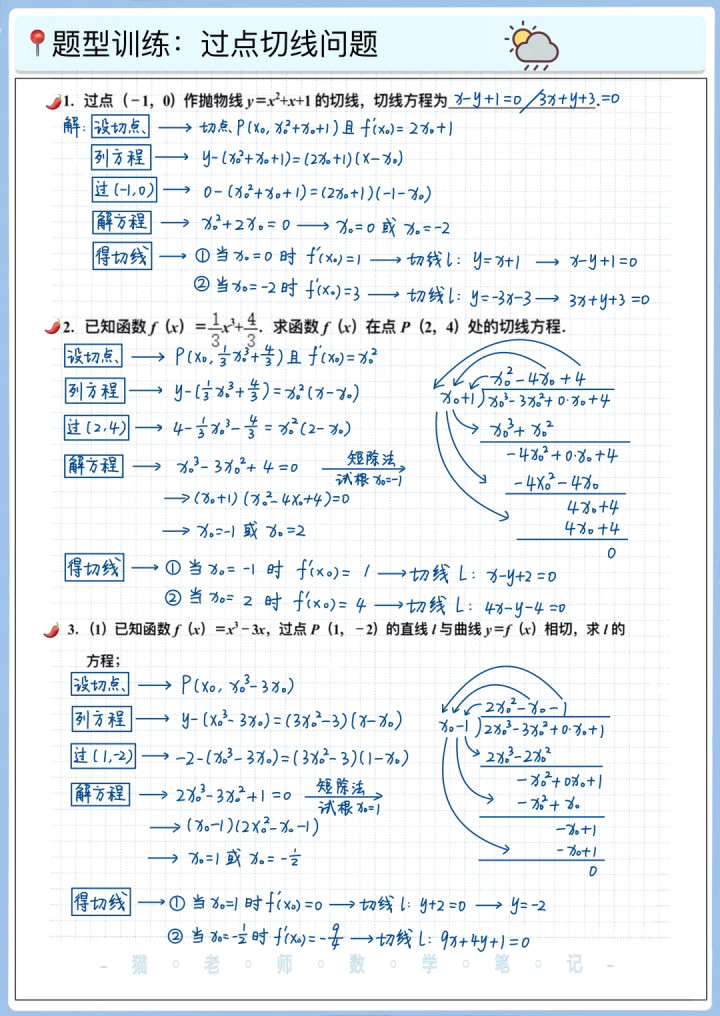 题型训练：过点切线问题
1. 过点（-1，0）作抛物线 y=x²+x+1 的切线，切线方程为 x-y+1=0 / 3x+y+3.=0
解: 设切点、 → 切点、P(x₀, x₀²+x₀+1) 且 f'(x₀)=2x₀+1
列方程 → y-(x₀²+x₀+1)=(2x₀+1)(x-x₀)
过(-1,0) → 0-(x₀²+x₀+1)=(2x₀+1)(-1-x₀)
解方程 → x₀²+2x₀=0 → x₀=0 或 x₀=-2
得切线 → ① 当 x₀=0 时 f'(x₀)=1 → 切线 l: y=x+1 → x-y+1=0
② 当 x₀=-2 时 f'(x₀)=3 → 切线 l: y=-3x-3 → 3x+y+3=0
2. 已知函数 f（x）=1/3x³+4/3. 求函数 f（x）在点 P（2，4）处的切线方程.
设切点、 → P(x₀, 1/3x₀³+4/3) 且 f'(x₀)=x₀²
列方程 → y-(1/3x₀³+4/3)=x₀²(x-x₀)
过(2,4) → 4-1/3x₀³-4/3=x₀²(2-x₀)
解方程 → x₀³-3x₀²+4=0 短除法 试根 x₀=-1
→ (x₀+1)(x₀²-4x₀+4)=0
→ x₀=-1 或 x₀=2
x₀²-4x₀+4
x₀+1) x₀³-3x₀²+0·x₀+4
x₀³+x₀²
-4x₀²+0·x₀+4
-4x₀²-4x₀
4x₀+4
4x₀+4
0
得切线 → ① 当 x₀=-1 时 f'(x₀)=1 → 切线 l: x-y+2=0
② 当 x₀=2 时 f'(x₀)=4 → 切线 l: 4x-y-4=0
3.（1）已知函数 f（x）=x³-3x，过点 P（1，-2）的直线 l 与曲线 y=f（x）相切，求 l 的
方程；
设切点、 → P(x₀, x₀³-3x₀)
列方程 → y-(x₀³-3x₀)=(3x₀²-3)(x-x₀)
过(1,-2) → -2-(x₀³-3x₀)=(3x₀²-3)(1-x₀)
解方程 → 2x₀³-3x₀²+1=0 短除法 试根 x₀=1
→ (x₀-1)(2x₀²-x₀-1)
→ x₀=1 或 x₀=-1/2
2x₀²-x₀-1
x₀-1) 2x₀³-3x₀²+0·x₀+1
2x₀³-2x₀²
-x₀²+0x₀+1
-x₀²+x₀
-x₀+1
-x₀+1
0
得切线 → ① 当 x₀=1 时 f'(x₀)=0 → 切线 l: y+2=0 → y=-2
② 当 x₀=-1/2 时 f'(x₀)=-9/4 → 切线 l: 9x+4y+1=0
- 猫 ○ 老 ○ 师 ○ 数 ○ 学 ○ 笔 ○ 记 -